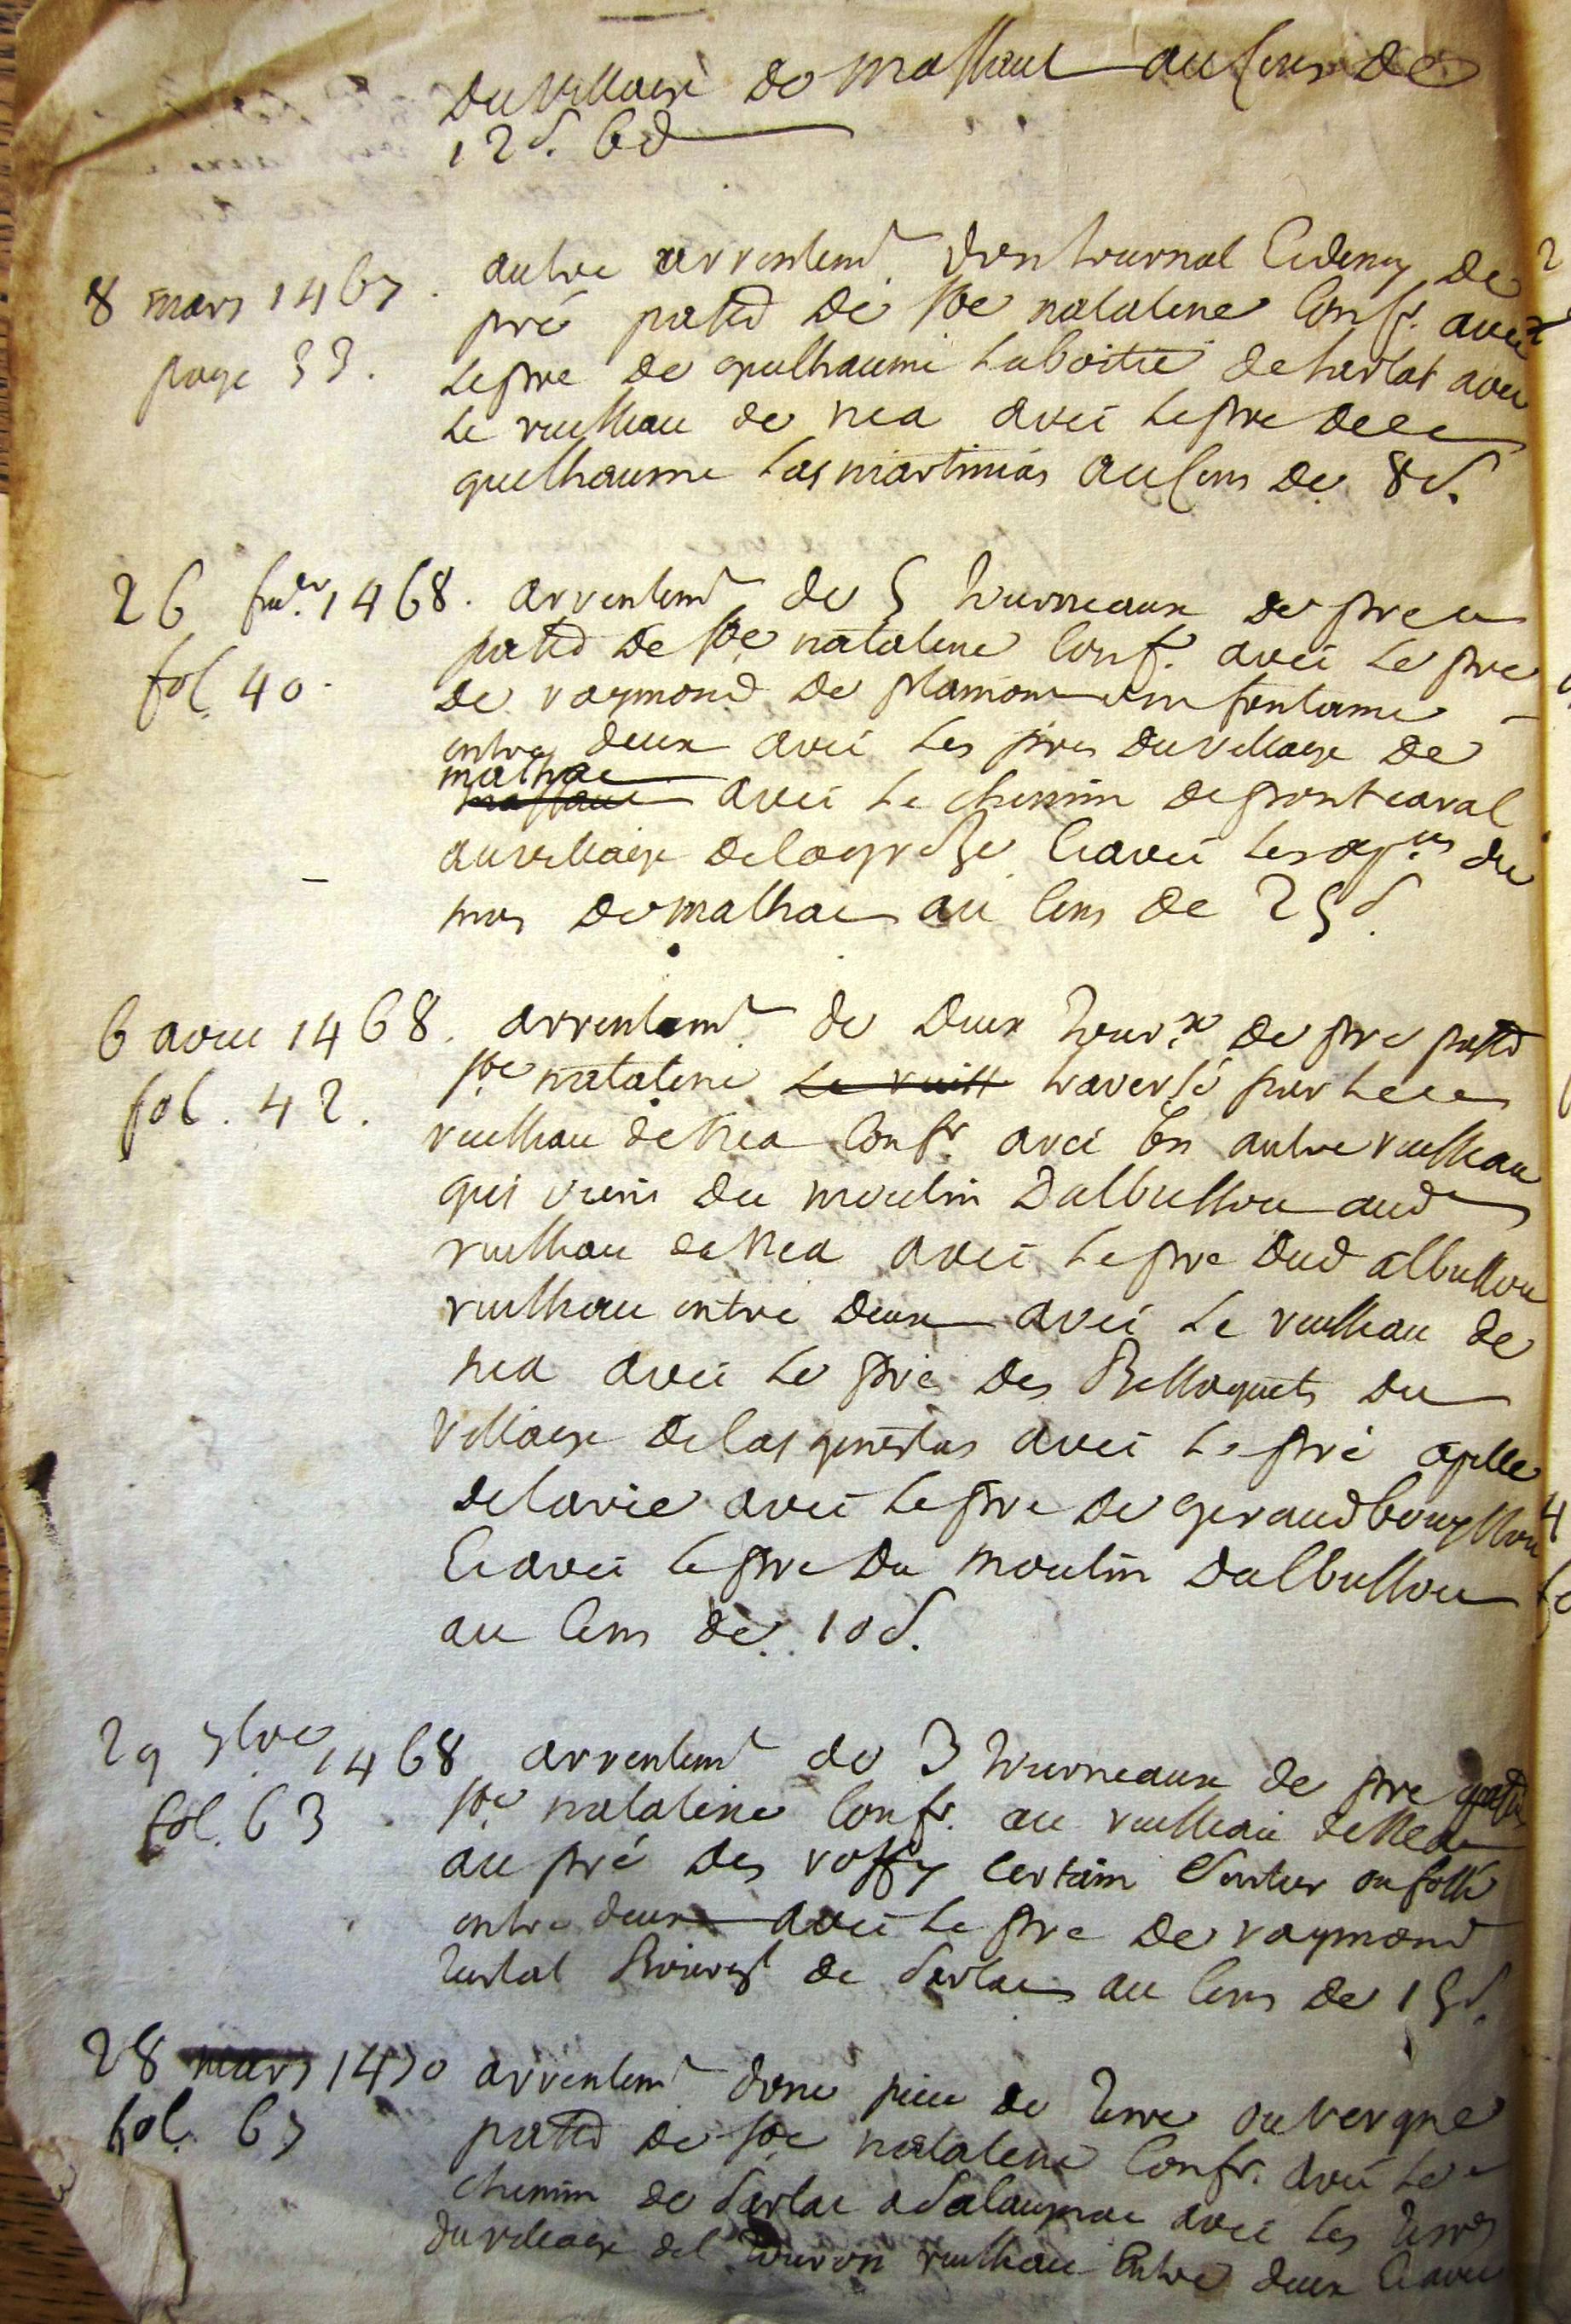 du village de malhau au sens de
12 s. 6 d
8 mars 1467
page 33.
autre arrentemt d'un journal et demy de
pré patid de ste natalene confr. avec
le pre de guilhaume laboitie de sarlat avec
le ruisseau de nea avec le pre de
guilhaume las martinias au sens de 8 s.
26 1468.
fol. 40.
arrentemt de 5 journeaux de pre
patid de ste natalene conf. avec le pre
de raymond de plamon une fontaine
entre deux avec les pres du village de
malhac
avec le chemin de pontcaral
au village de la et avec les du
mas de malhac au cens de 25 s.
6 avril 1468.
fol. 42.
arrentemt de deux jourx de pre patid
ste natalene le ruiss traversé par le
ruisseau de nea confr. avec un autre ruisseau
qui vient du moulin d'albussou aud
ruisseau de nea avec le pre dud albussou
ruisseau entre deux avec le ruisseau de
nea avec le pré des du
village de las genestas avec le pré apelle
de lavie avec le pre de geraud
et avec le pre du moulin d'albussou
au cens de 10 s.
29 1468
fol. 63
arrentemt de 3 journeaux de pre patid
ste natalene confr. au ruisseau de nea
au pré des roffy certain sentier ou fossé
entre deux avec le pre de raymond
de sarlac au cens de 15 s.
28 mars 1470
fol. 67
arrentemt d'une piece de terre ou vergne
patid de ste natalene confr. avec le
chemin de sarlac a salaugnac avec les terres
du village del touron ruisseau entre deux et avec